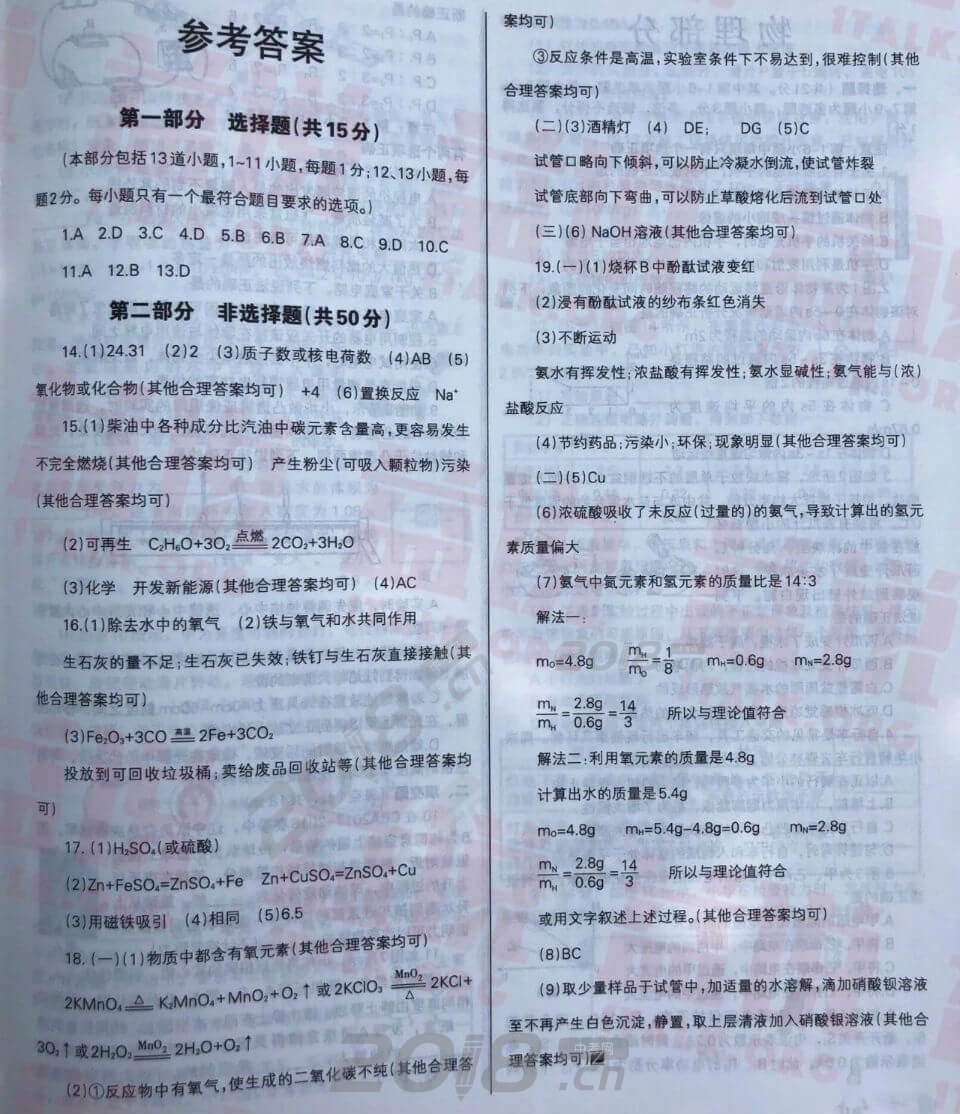 参考答案
第一部分 选择题(共15分)
(本部分包括13道小题,1~11小题,每题1分;12、13小题,每
题2分。每小题只有一个最符合题目要求的选项。)
1.A 2.D 3.C 4.D 5.B 6.B 7.A 8.C 9.D 10.C
11.A 12.B 13.D
第二部分 非选择题(共50分)
14.(1)24.31 (2)2 (3)质子数或核电荷数 (4)AB (5)
氧化物或化合物(其他合理答案均可) +4 (6)置换反应 Na⁺
15.(1)柴油中各种成分比汽油中碳元素含量高,更容易发生
不完全燃烧(其他合理答案均可) 产生粉尘(可吸入颗粒物)污染
(其他合理答案均可)
(2)可再生 C₂H₆O+3O₂ 点燃 2CO₂+3H₂O
(3)化学 开发新能源(其他合理答案均可) (4)AC
16.(1)除去水中的氧气 (2)铁与氧气和水共同作用
生石灰的量不足;生石灰已失效;铁钉与生石灰直接接触(其
他合理答案均可)
(3)Fe₂O₃+3CO 高温 2Fe+3CO₂
投放到可回收垃圾桶;卖给废品回收站等(其他合理答案均
可)
17.(1)H₂SO₄(或硫酸)
(2)Zn+FeSO₄=ZnSO₄+Fe Zn+CuSO₄=ZnSO₄+Cu
(3)用磁铁吸引 (4)相同 (5)6.5
18.(一)(1)物质中都含有氧元素(其他合理答案均可)
2KMnO₄ △ K₂MnO₄+MnO₂+O₂↑或2KClO₃ MnO₂ △ 2KCl+
3O₂↑或2H₂O₂ MnO₂ 2H₂O+O₂↑
(2)①反应物中有氧气,使生成的二氧化碳不纯(其他合理答
案均可)
③反应条件是高温,实验室条件下不易达到,很难控制(其他
合理答案均可)
(二)(3)酒精灯 (4) DE; DG (5)C
试管口略向下倾斜,可以防止冷凝水倒流,使试管炸裂
试管底部向下弯曲,可以防止草酸熔化后流到试管口处
(三)(6) NaOH溶液(其他合理答案均可)
19.(一)(1)烧杯B中酚酞试液变红
(2)浸有酚酞试液的纱布条红色消失
(3)不断运动
氨水有挥发性;浓盐酸有挥发性;氨水显碱性;氨气能与(浓)
盐酸反应
(4)节约药品;污染小;环保;现象明显(其他合理答案均可)
(二)(5)Cu
(6)浓硫酸吸收了未反应(过量的)的氨气,导致计算出的氢元
素质量偏大
(7)氨气中氮元素和氢元素的质量比是14:3
解法一:
mO=4.8g mH/mO=1/8 mH=0.6g mN=2.8g
mN/mH=2.8g/0.6g=14/3 所以与理论值符合
解法二:利用氧元素的质量是4.8g
计算出水的质量是5.4g
mO=4.8g mH=5.4g-4.8g=0.6g mN=2.8g
mN/mH=2.8g/0.6g=14/3 所以与理论值符合
或用文字叙述上述过程。(其他合理答案均可)
(8)BC
(9)取少量样品于试管中,加适量的水溶解,滴加硝酸钡溶液
至不再产生白色沉淀,静置,取上层清液加入硝酸银溶液(其他合
理答案均可)
中考网
2018.cn